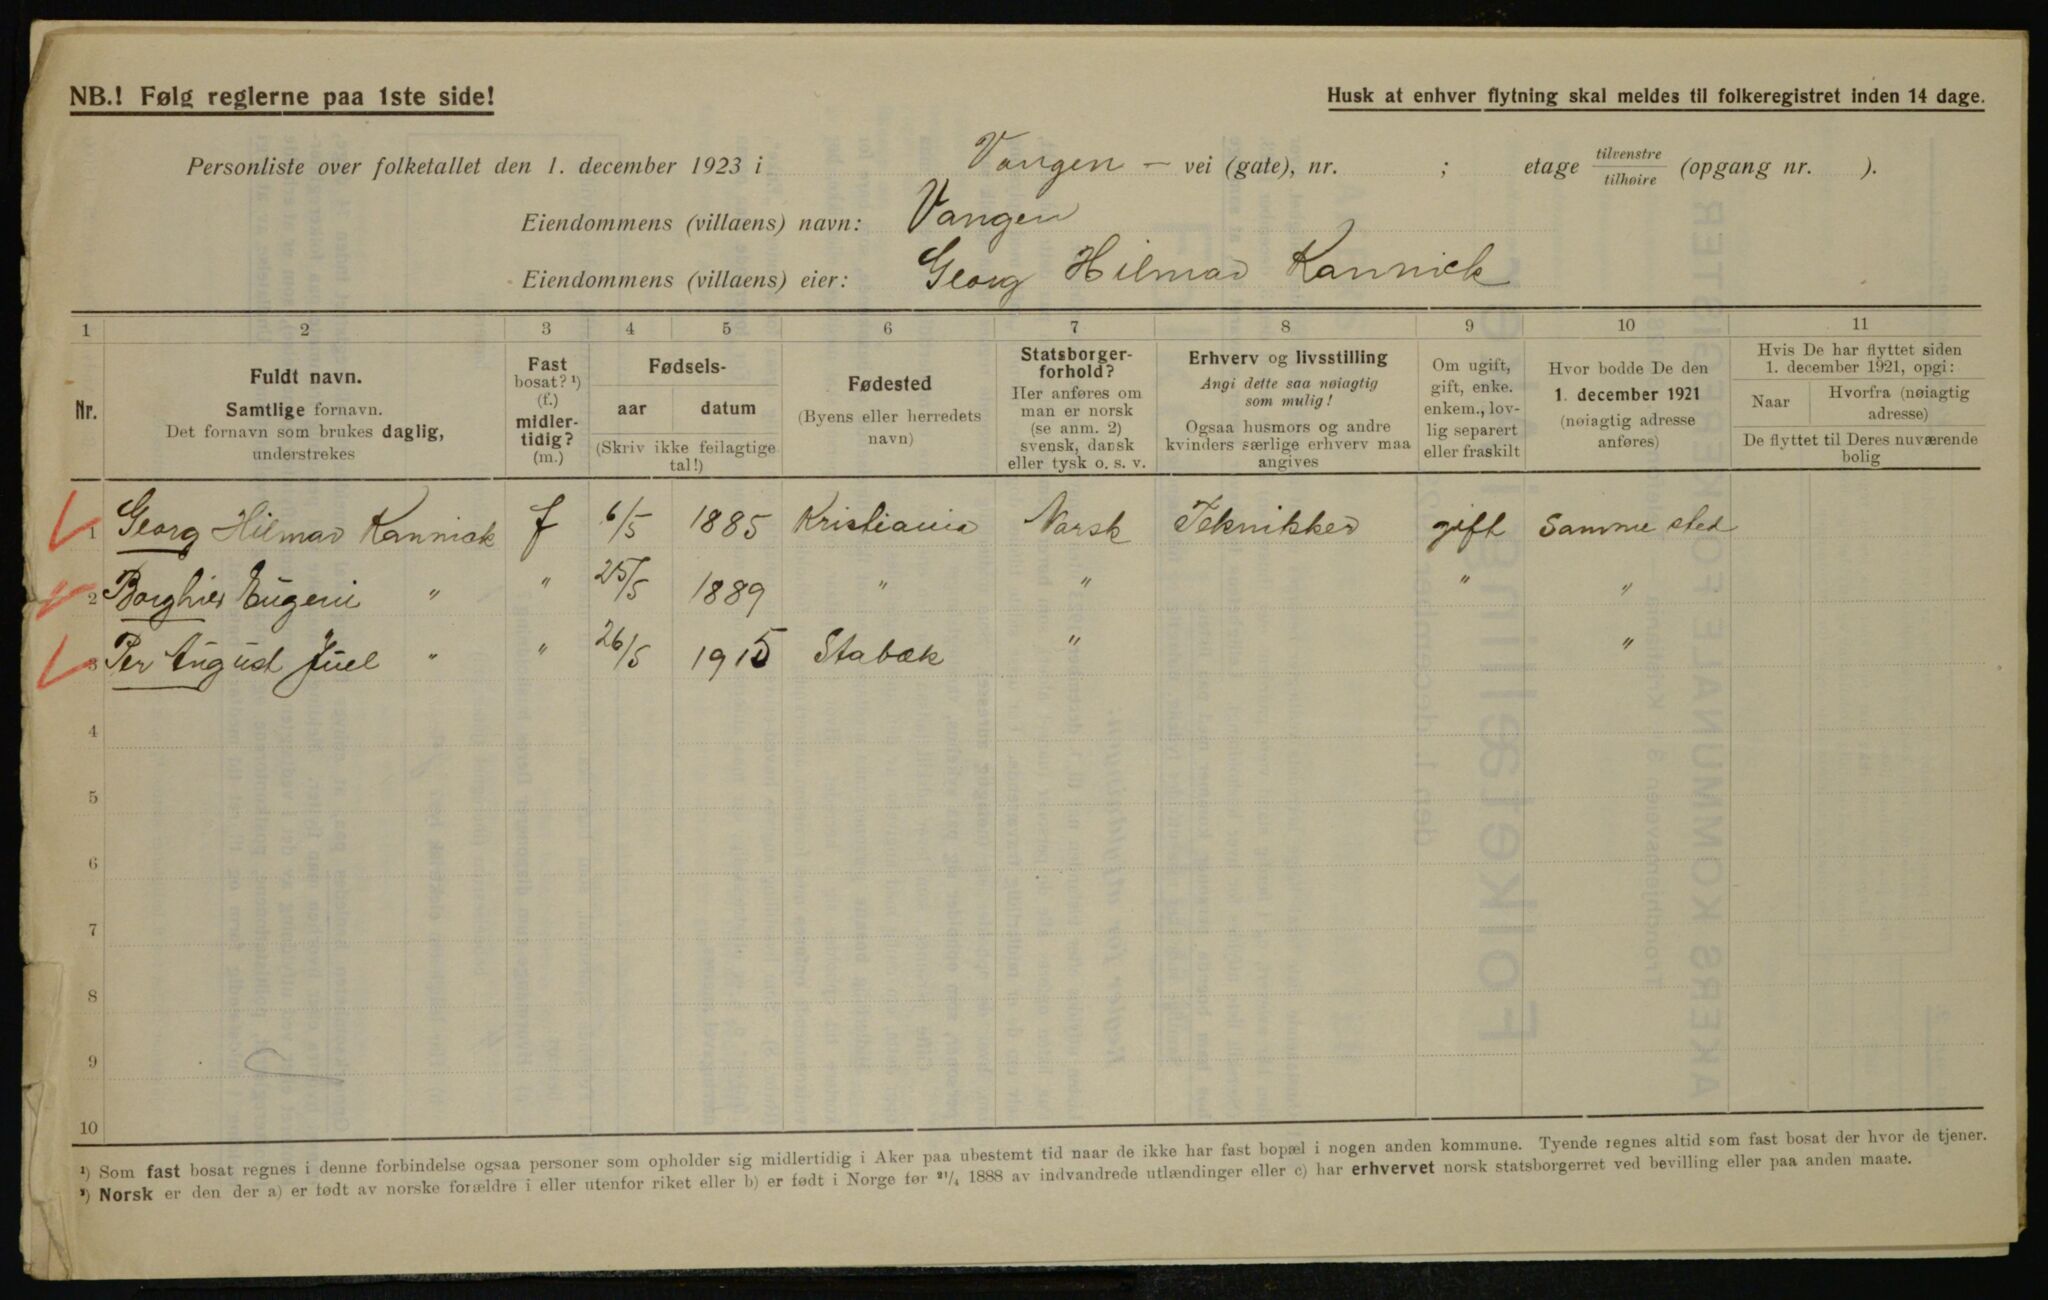 NB.! Følg reglerne paa 1ste side!
Husk at enhver flytning skal meldes til folkeregistret inden 14 dage.
Personliste over folketallet den 1. december 1923 i Vangen – vei (gate), nr. ; etage tilvenstre/tilhøire (opgang nr. ).
Eiendommens (villaens) navn: Vangen
Eiendommens (villaens) eier: Georg Hilmar Kannick
1 2 3 4 5 6 7 8 9 10 11
Nr.
Fuldt navn.
Samtlige fornavn.
Det fornavn som brukes daglig,
understrekes
Fast
bosat? ¹)
(f.)
midler-
tidig?
(m.)
Fødsels-
aar datum
(Skriv ikke feilagtige
tal!)
Fødested
(Byens eller herredets
navn)
Statsborger-
forhold?
Her anføres om
man er norsk
(se anm. 2)
svensk, dansk
eller tysk o. s. v.
Erhverv og livsstilling
Angi dette saa nøiagtig
som mulig!
Ogsaa husmors og andre
kvinders særlige erhverv maa
angives
Om ugift,
gift, enke.
enkem., lov-
lig separert
eller fraskilt
Hvor bodde De den
1. december 1921
(nøiagtig adresse
anføres)
Hvis De har flyttet siden
1. december 1921, opgi:
Naar
Hvorfra (nøiagtig
adresse)
De flyttet til Deres nuværende
bolig
1 Georg Hilmar Kannick f 6/5 1885 Kristiania Norsk Tekniker gift Samme sted
2 Borghild Eugeni " " 25/5 1889 " " " "
3 Per August Juel " " 26/5 1915 Stabæk " "
4
5
6
7
8
9
10
¹) Som fast bosat regnes i denne forbindelse ogsaa personer som opholder sig midlertidig i Aker paa ubestemt tid naar de ikke har fast bopæl i nogen anden kommune. Tyende regnes altid som fast bosat der hvor de tjener.
²) Norsk er den der a) er født av norske forældre i eller utenfor riket eller b) er født i Norge før 21/4 1888 av indvandrede utlændinger eller c) har erhvervet norsk statsborgerret ved bevilling eller paa anden maate.